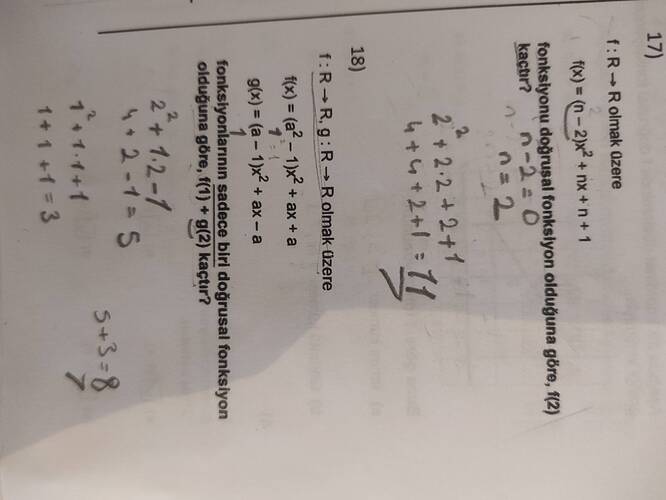 17)
f : R → R olmak üzere
f(x) = (n – 2)x² + nx + n + 1
fonksiyonu doğrusal fonksiyon olduğuna göre, f(2)
kaçtır?
n-2=0
n=2
2² + 2.2 + 2+1
4+4+2+1 = 11
18)
f : R → R, g : R → R olmak üzere
f(x) = (a² – 1)x² + ax + a
g(x) = (a – 1)x² + ax – a
fonksiyonlarının sadece biri doğrusal fonksiyon
olduğuna göre, f(1) + g(2) kaçtır?
2² + 1.2 - 1
4 + 2 - 1 = 5
1² + 1.1 + 1
1 + 1 + 1 = 3
5+3=8